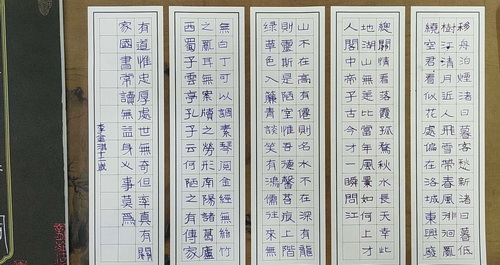 移舟泊煙渚日暮客愁新渚日暮低
樹江清月近人飛雪帶春風徘徊亂
繞空君看似花處偏在洛城東興盛
總關情看落霞孤鶩秋水長天幸此
地湖山無恙比當年風景如何上才
人閣中帝子古今才一瞬問江
山不在高有僊則名水不在深有龍
則靈斯是陋室惟吾德馨苔痕上階
綠草色入簾青談笑有鴻儒往來無
無白丁可以調素琴閱金經無絲竹
之亂耳無案牘之勞形南陽諸葛廬
西蜀子雲亭孔子云何陋之有傳家
有道惟忠厚處世無奇但率真有關
家國書常讀無益身心事莫爲